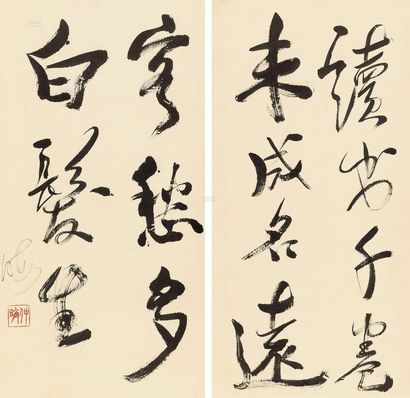 讀书千卷
未成名遠
客愁多
白髮生